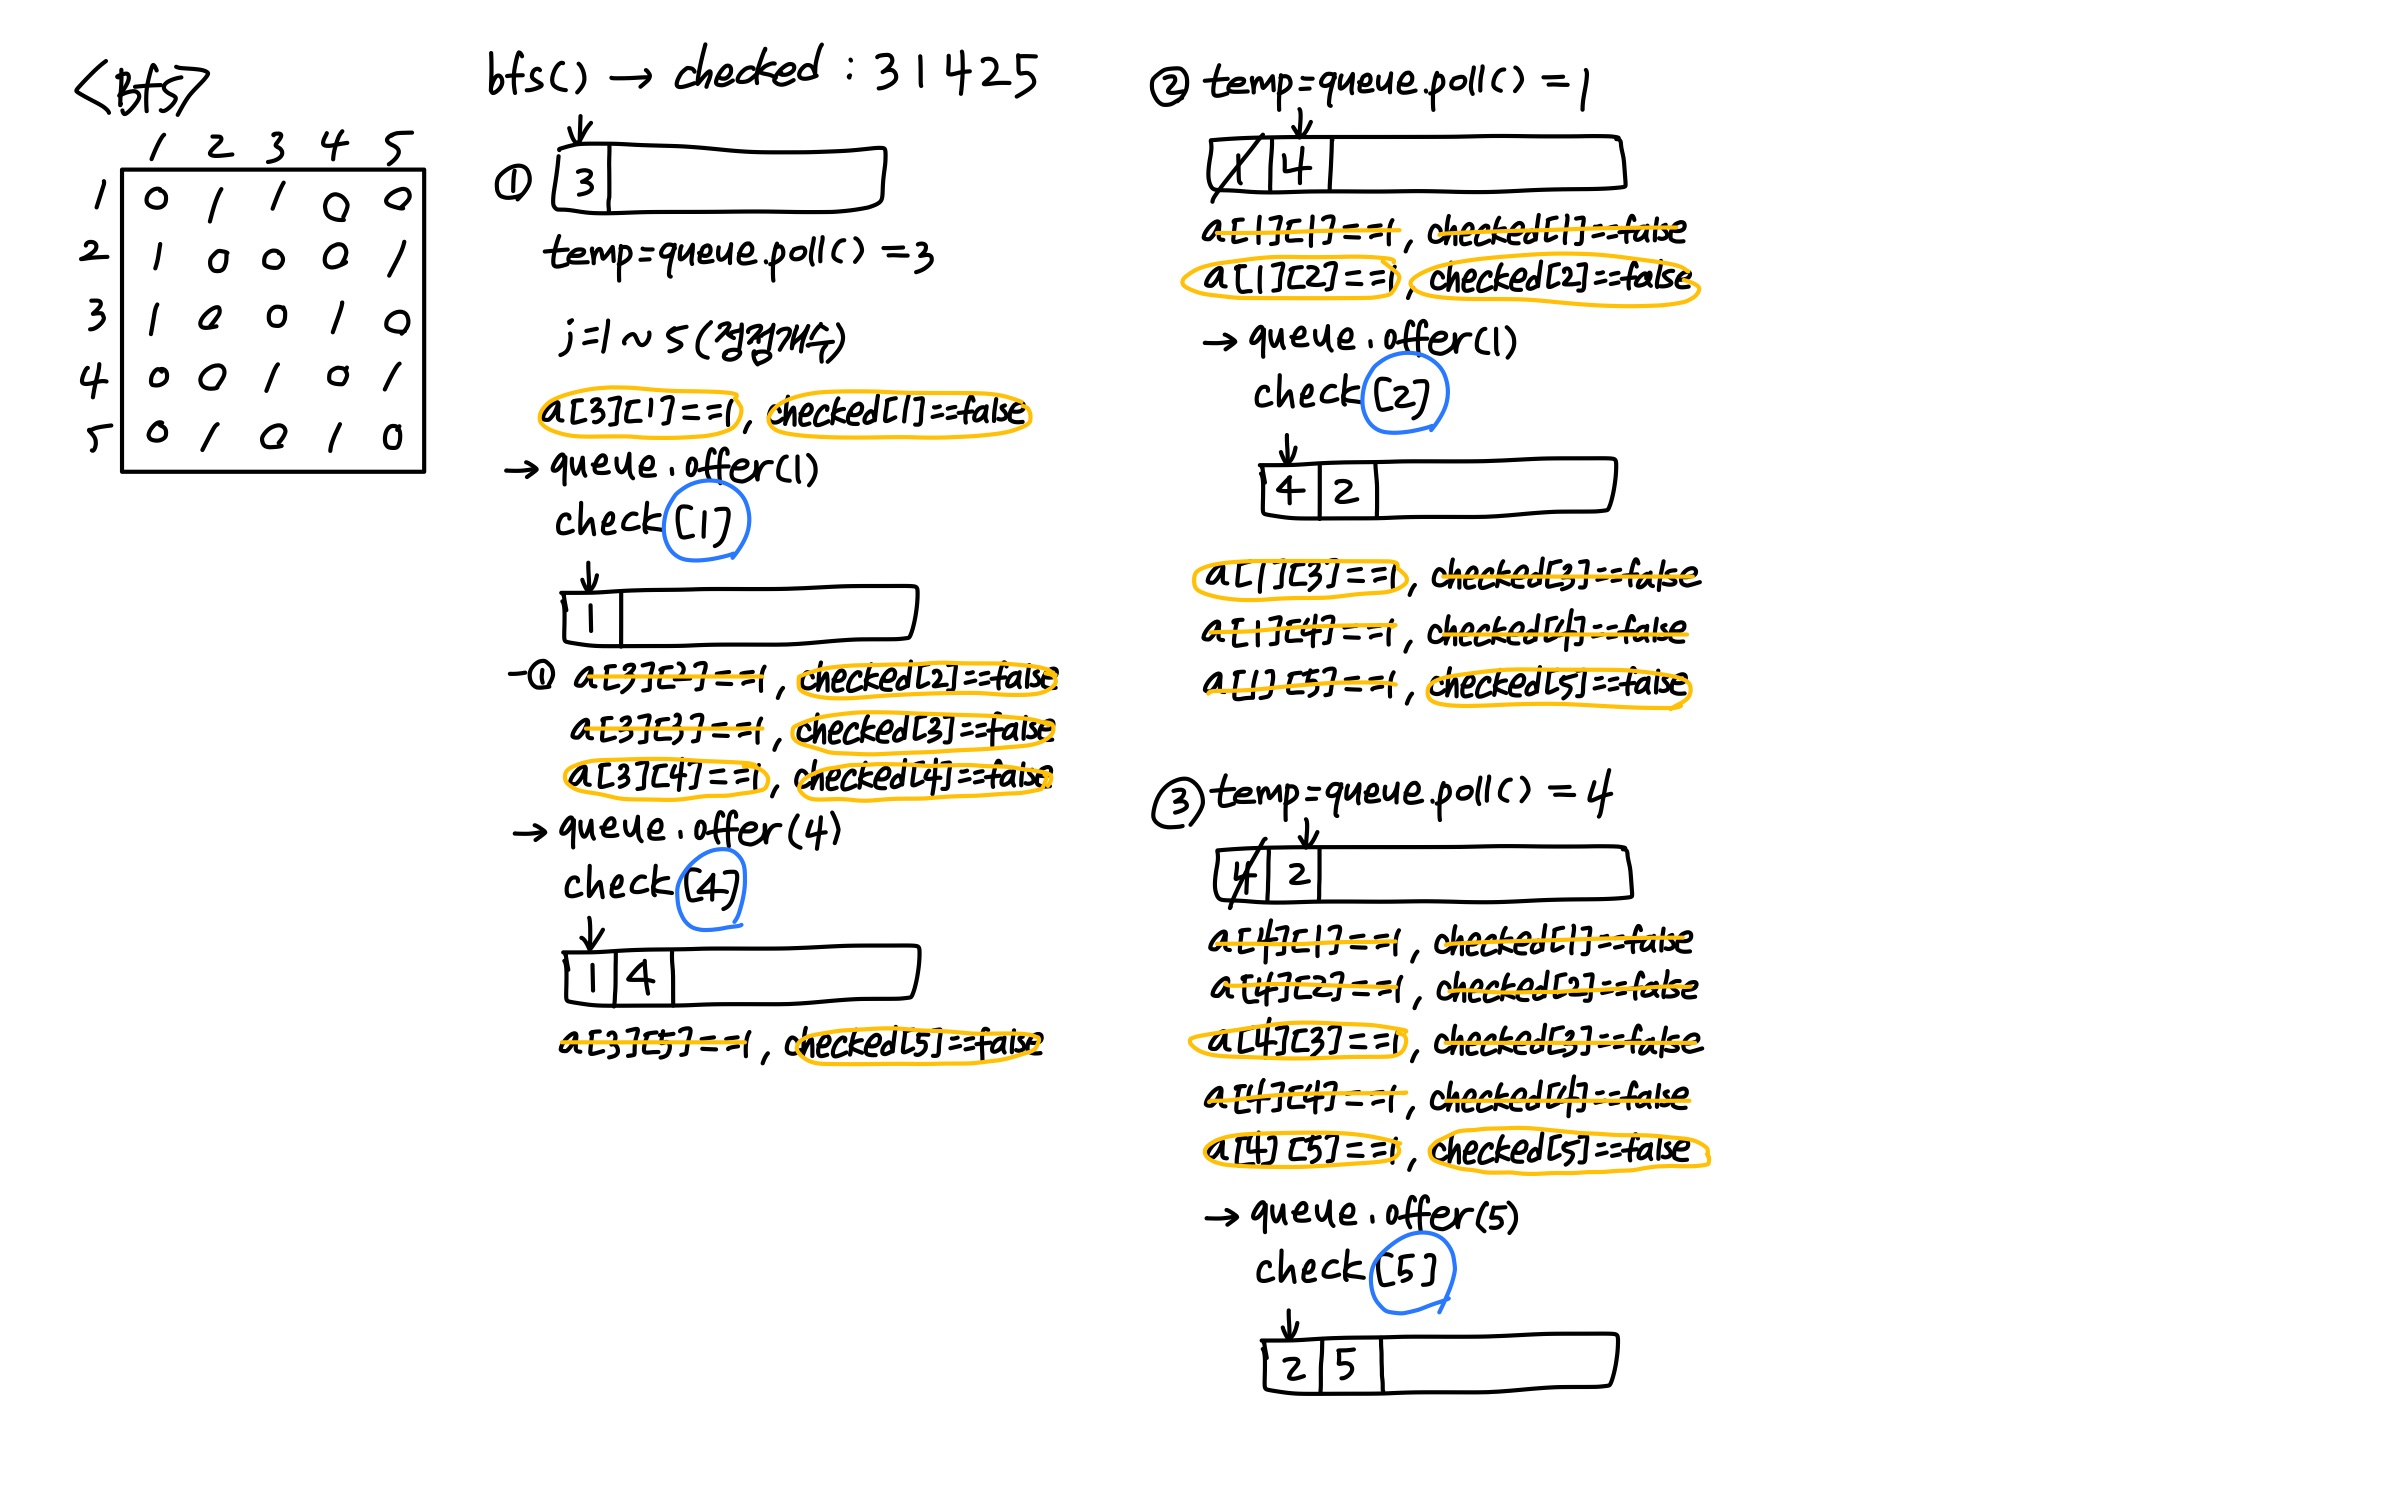 <bfs>
1 2 3 4 5
1 0 1 1 0 0
2 1 0 0 0 1
3 1 0 0 1 0
4 0 0 1 0 1
5 0 1 0 1 0
bfs() → checked : 3 1 4 2 5
① 3
temp=queue.poll() = 3
j=1 ~ 5
a[3][1]==1, checked[1]==false
→ queue.offer(1)
check[1]
1
-① a[3][2]==1, checked[2]==false
a[3][3]==1, checked[3]==false
a[3][4]==1, checked[4]==false
→ queue.offer(4)
check[4]
1 4
a[3][5]==1, checked[5]==false
② temp=queue.poll() = 1
1 4
a[1][1]==1, checked[1]==false
a[1][2]==1, checked[2]==false
→ queue.offer(1)
check[2]
4 2
a[1][3]==1, checked[3]==false
a[1][4]==1, checked[4]==false
a[1][5]==1, checked[5]==false
③ temp=queue.poll() = 4
4 2
a[4][1]==1, checked[1]==false
a[4][2]==1, checked[2]==false
a[4][3]==1, checked[3]==false
a[4][4]==1, checked[4]==false
a[4][5]==1, checked[5]==false
→ queue.offer(5)
check[5]
2 5